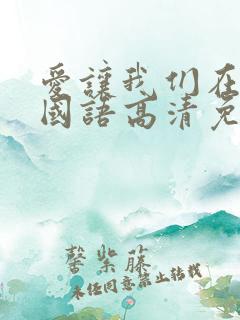 愛讓我们在
國語高清免
馨紫藤
未经同意禁止转载